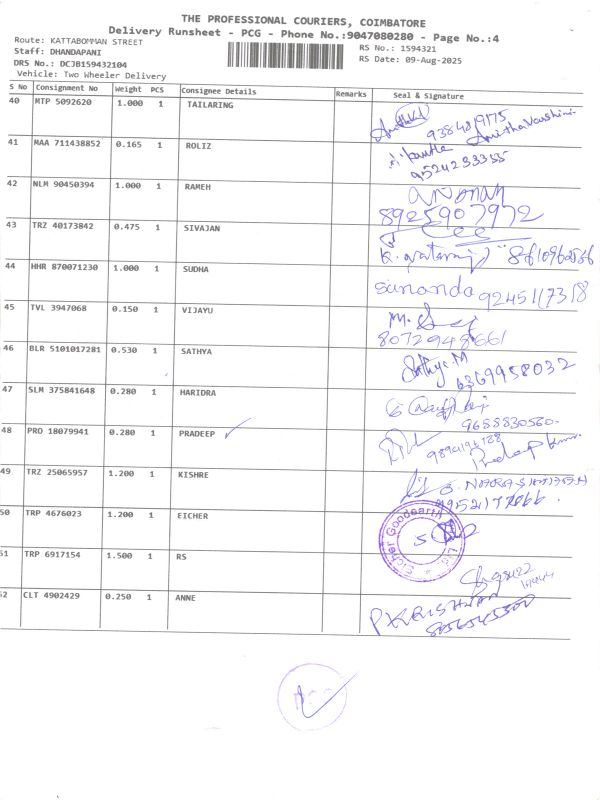 THE PROFESSIONAL COURIERS, COIMBATORE
Delivery Runsheet - PCG - Phone No.:9047080280 - Page No.:4
Route: KATTABOMMAN STREET
RS No.: 1594321
Staff: DHANDAPANI
RS Date: 09-Aug-2025
DRS No.: DCJB159432104
Vehicle: Two Wheeler Delivery
S No Consignment No Weight PCS Consignee Details Remarks Seal & Signature
40 MTP 5092620 1.000 1 TAILARING
9384819175
41 MAA 711438852 0.165 1 ROLIZ
9524233355
42 NLM 90450394 1.000 1 RAMEH
8925907972
43 TRZ 40173842 0.475 1 SIVAJAN
44 HHR 870071230 1.000 1 SUDHA
sunanda 9245117318
45 TVL 3947068 0.150 1 VIJAYU
8072948661
46 BLR 5101017281 0.530 1 SATHYA
Sathya.M
6369958032
47 SLM 375841648 0.280 1 HARIDRA
9688830560
48 PRO 18079941 0.280 1 PRADEEP
Pradeep
49 TRZ 25065957 1.200 1 KISHRE
50 TRP 4676023 1.200 1 EICHER
Eicher Goodearth
51 TRP 6917154 1.500 1 RS
52 CLT 4902429 0.250 1 ANNE